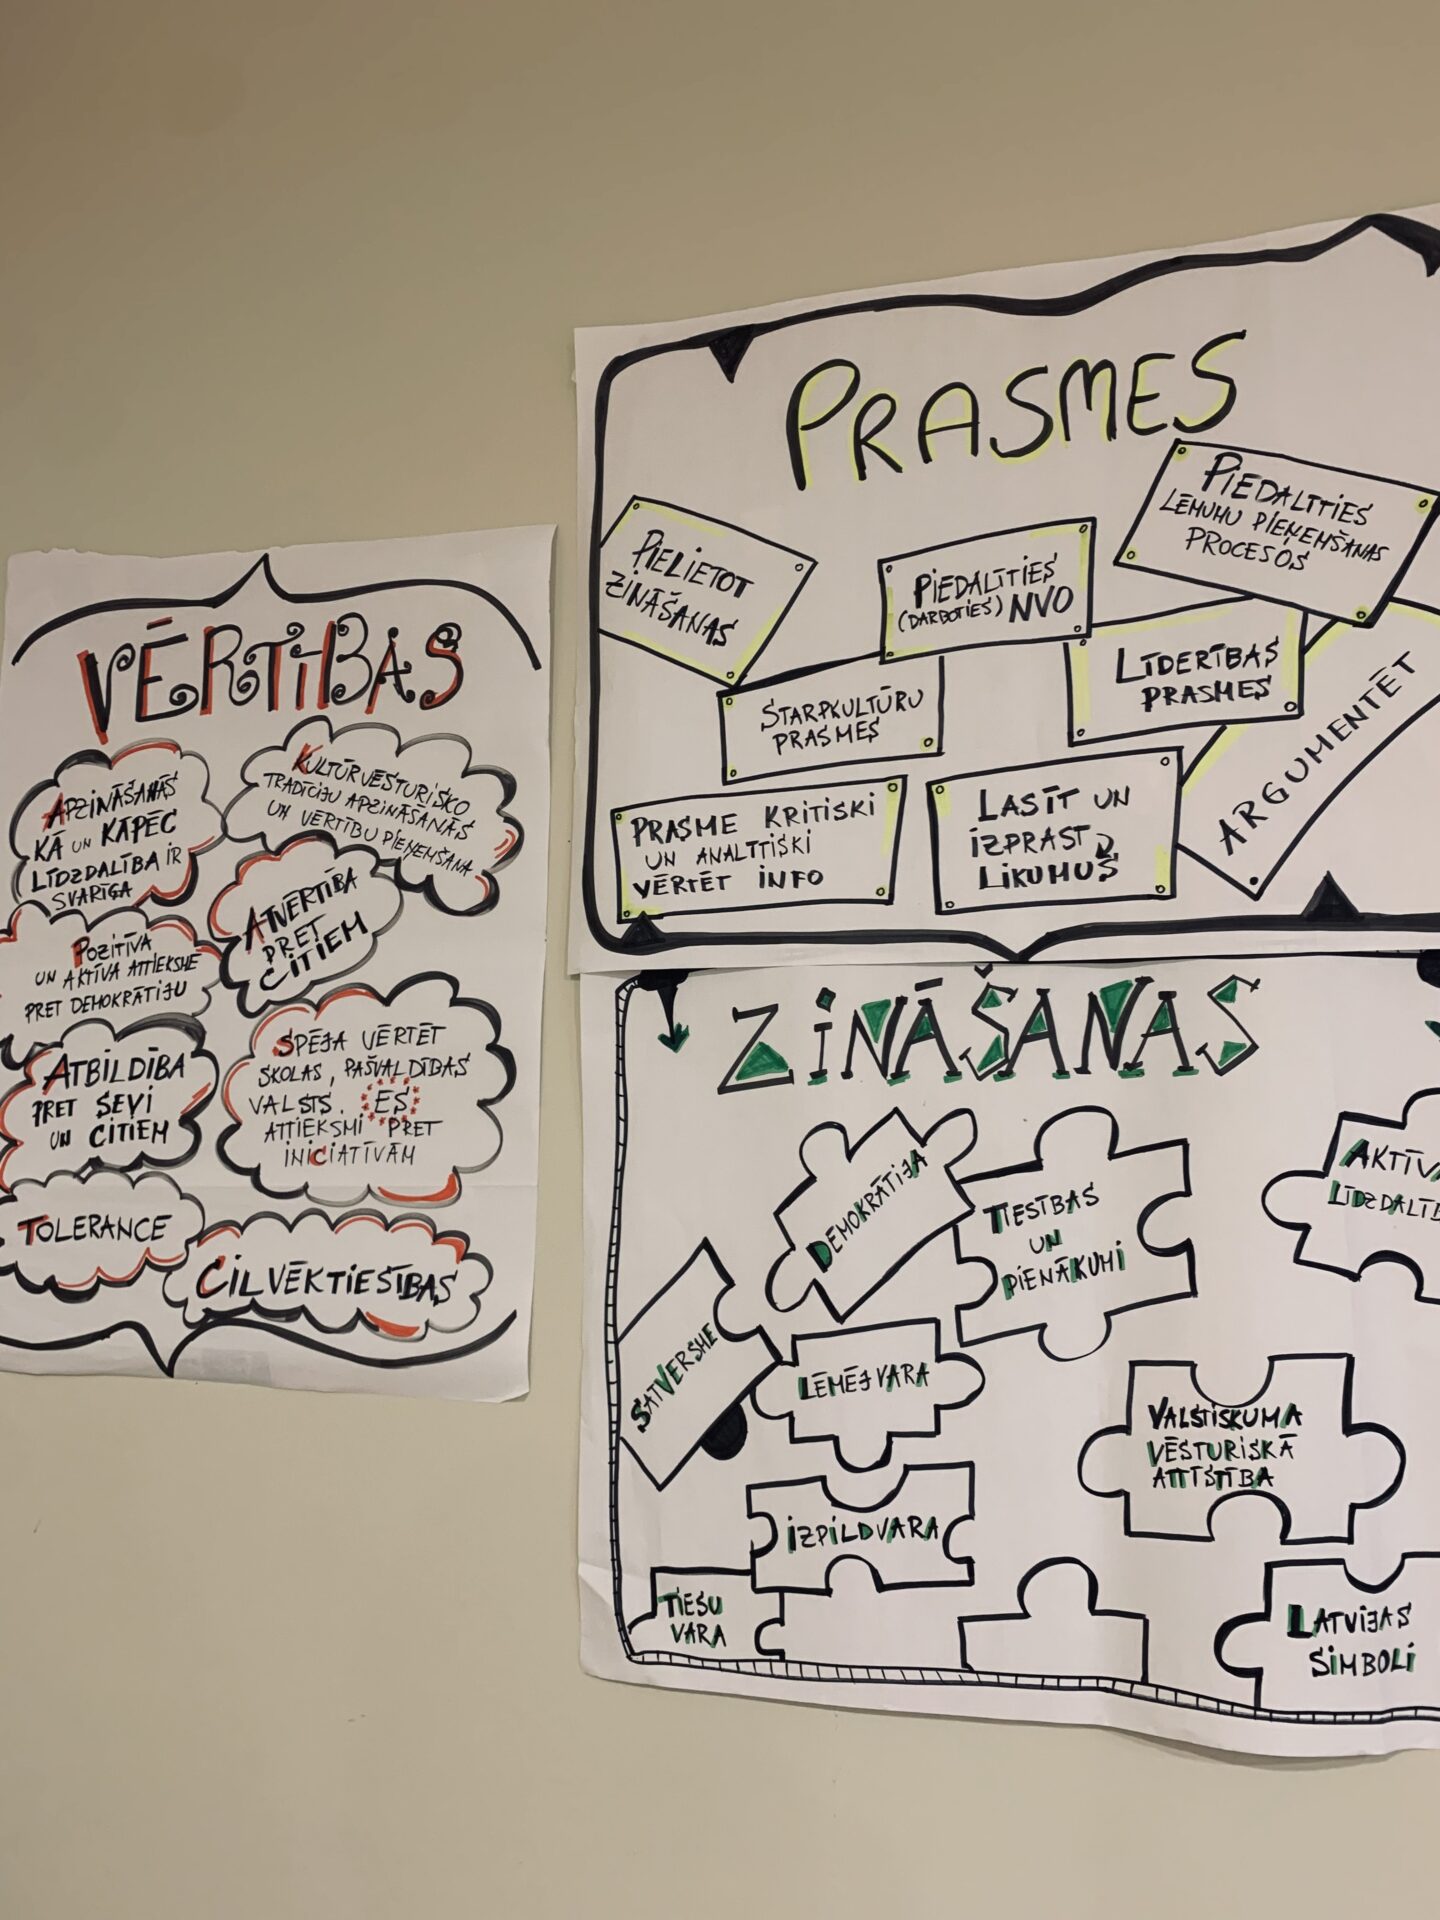 VĒRTĪBAS
APZINĀŠANĀS
KĀ UN KĀPĒC
LĪDZDALĪBA IR
SVARĪGA
KULTŪRVĒSTURISKO
TRADĪCIJU APZINĀŠANĀS
UN VĒRTĪBU PIEŅEMŠANA
ATVĒRTĪBA
PRET
CITIEM
POZITĪVA
UN AKTĪVA ATTIEKSME
PRET DEMOKRĀTIJU
ATBILDĪBA
PRET SEVI
UN CITIEM
SPĒJA VĒRTĒT
SKOLAS, PAŠVALDĪBAS
VALSTS, ES
ATTIEKSMI PRET
INICIATĪVĀM
TOLERANCE
CILVĒKTIESĪBAS
PRASMES
PIELIETOT
ZINĀŠANAS
PIEDALĪTIES
(DARBOTIES) NVO
PIEDALĪTIES
LĒMUMU PIEŅEMŠANAS
PROCESOS
STARPKULTŪRU
PRASMES
LĪDERĪBAS
PRASMES
ARGUMENTĒT
PRASME KRITISKI
UN ANALĪTISKI
VĒRTĒT INFO
LASĪT UN
IZPRAST
LIKUMUS
ZINĀŠANAS
DEMOKRĀTIJA
TIESĪBAS
UN
PIENĀKUMI
AKTĪV
LĪDZDALĪB
SATVERSME
LĒMĒJVARA
VALSTISKUMA
VĒSTURISKĀ
ATTĪSTĪBA
IZPILDVARA
TIESU
VARA
LATVIJAS
SIMBOLI